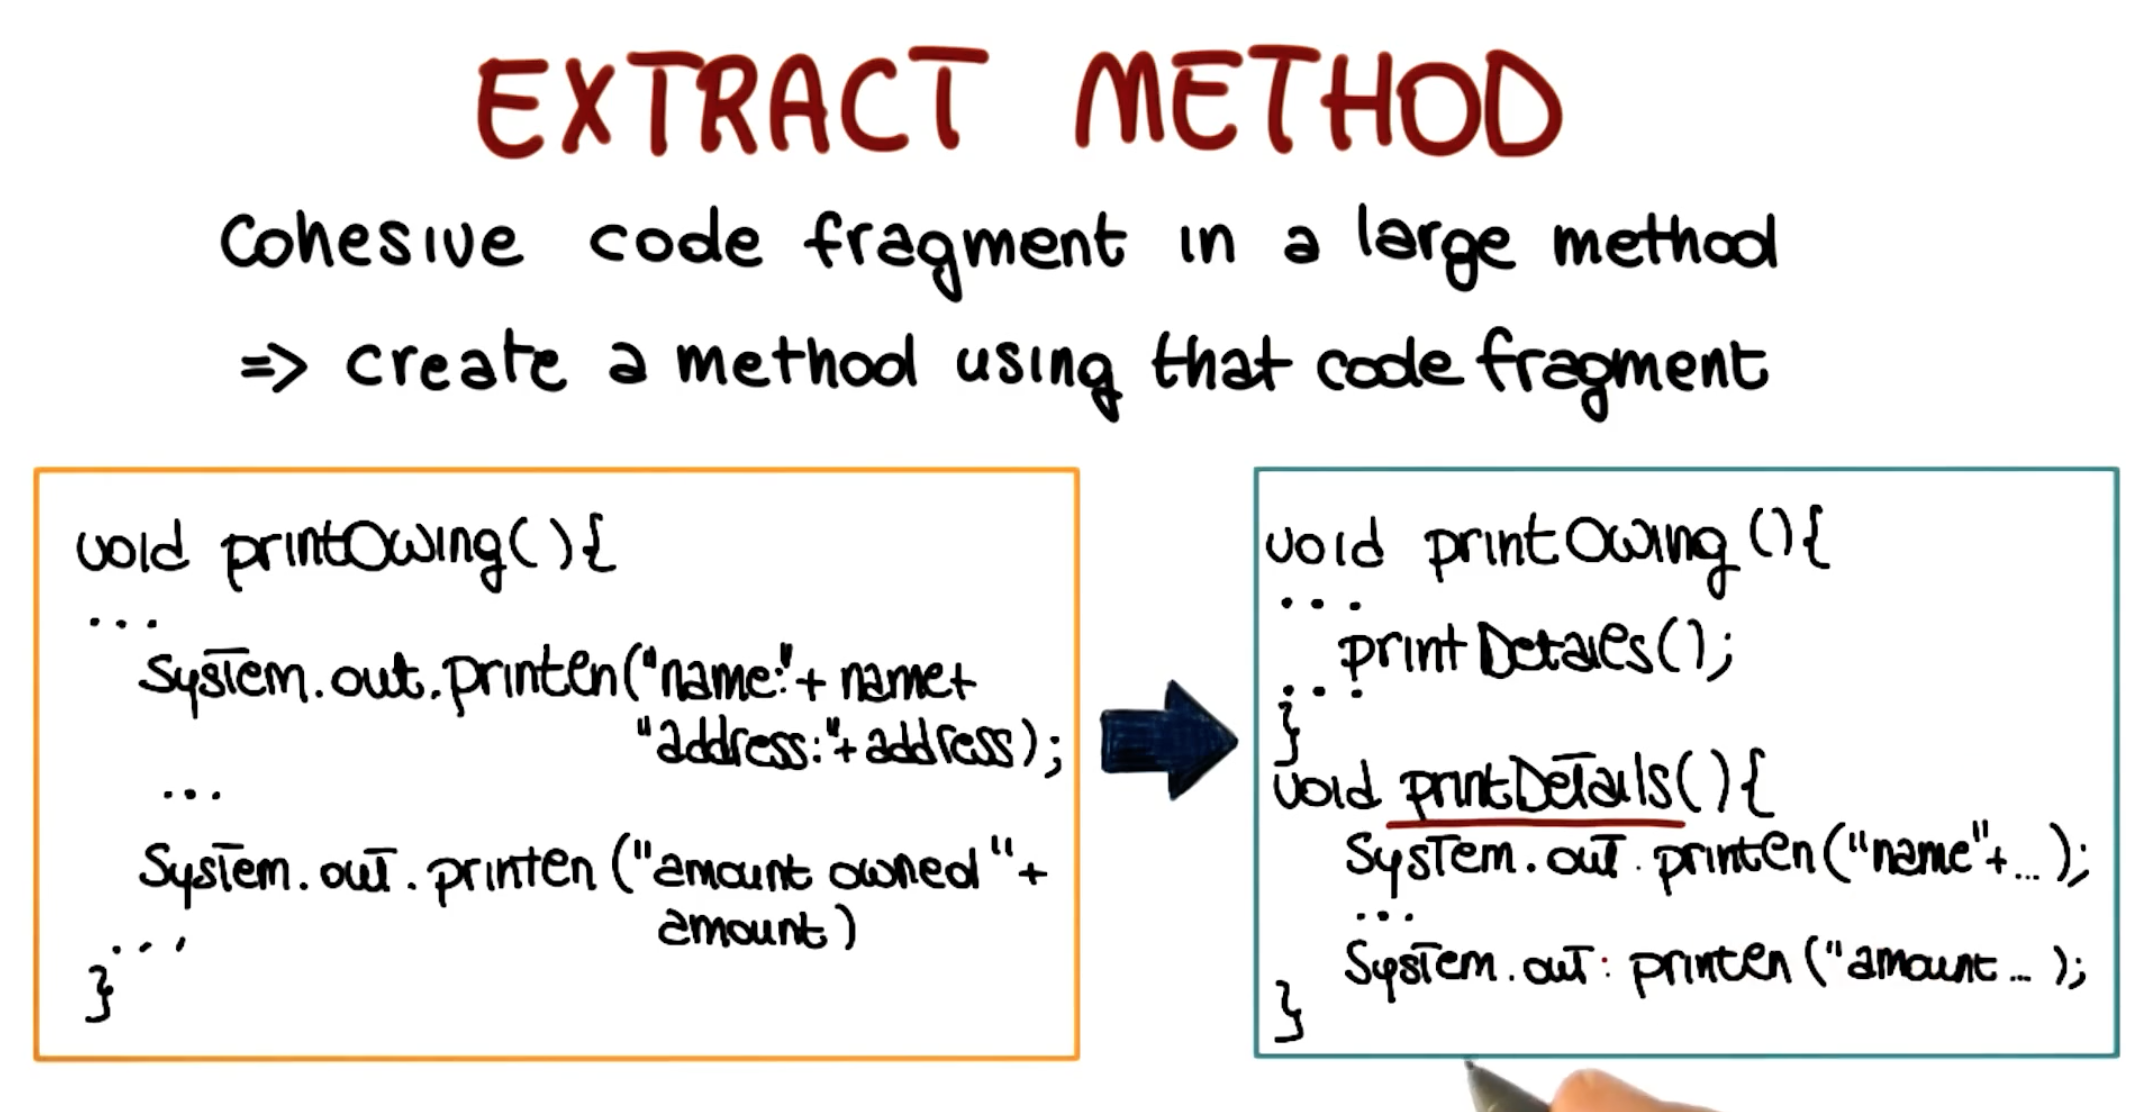 EXTRACT METHOD
Cohesive code fragment in a large method
=> create a method using that code fragment
void printOwing(){
...
System.out.println("name:"+ name+
"address:"+address);
...
System.out.println("amount owned"+
amount)
...
}
void printOwing(){
...
printDetails();
...
}
void printDetails(){
System.out.println("name"+...);
...
System.out.println("amount...);
}